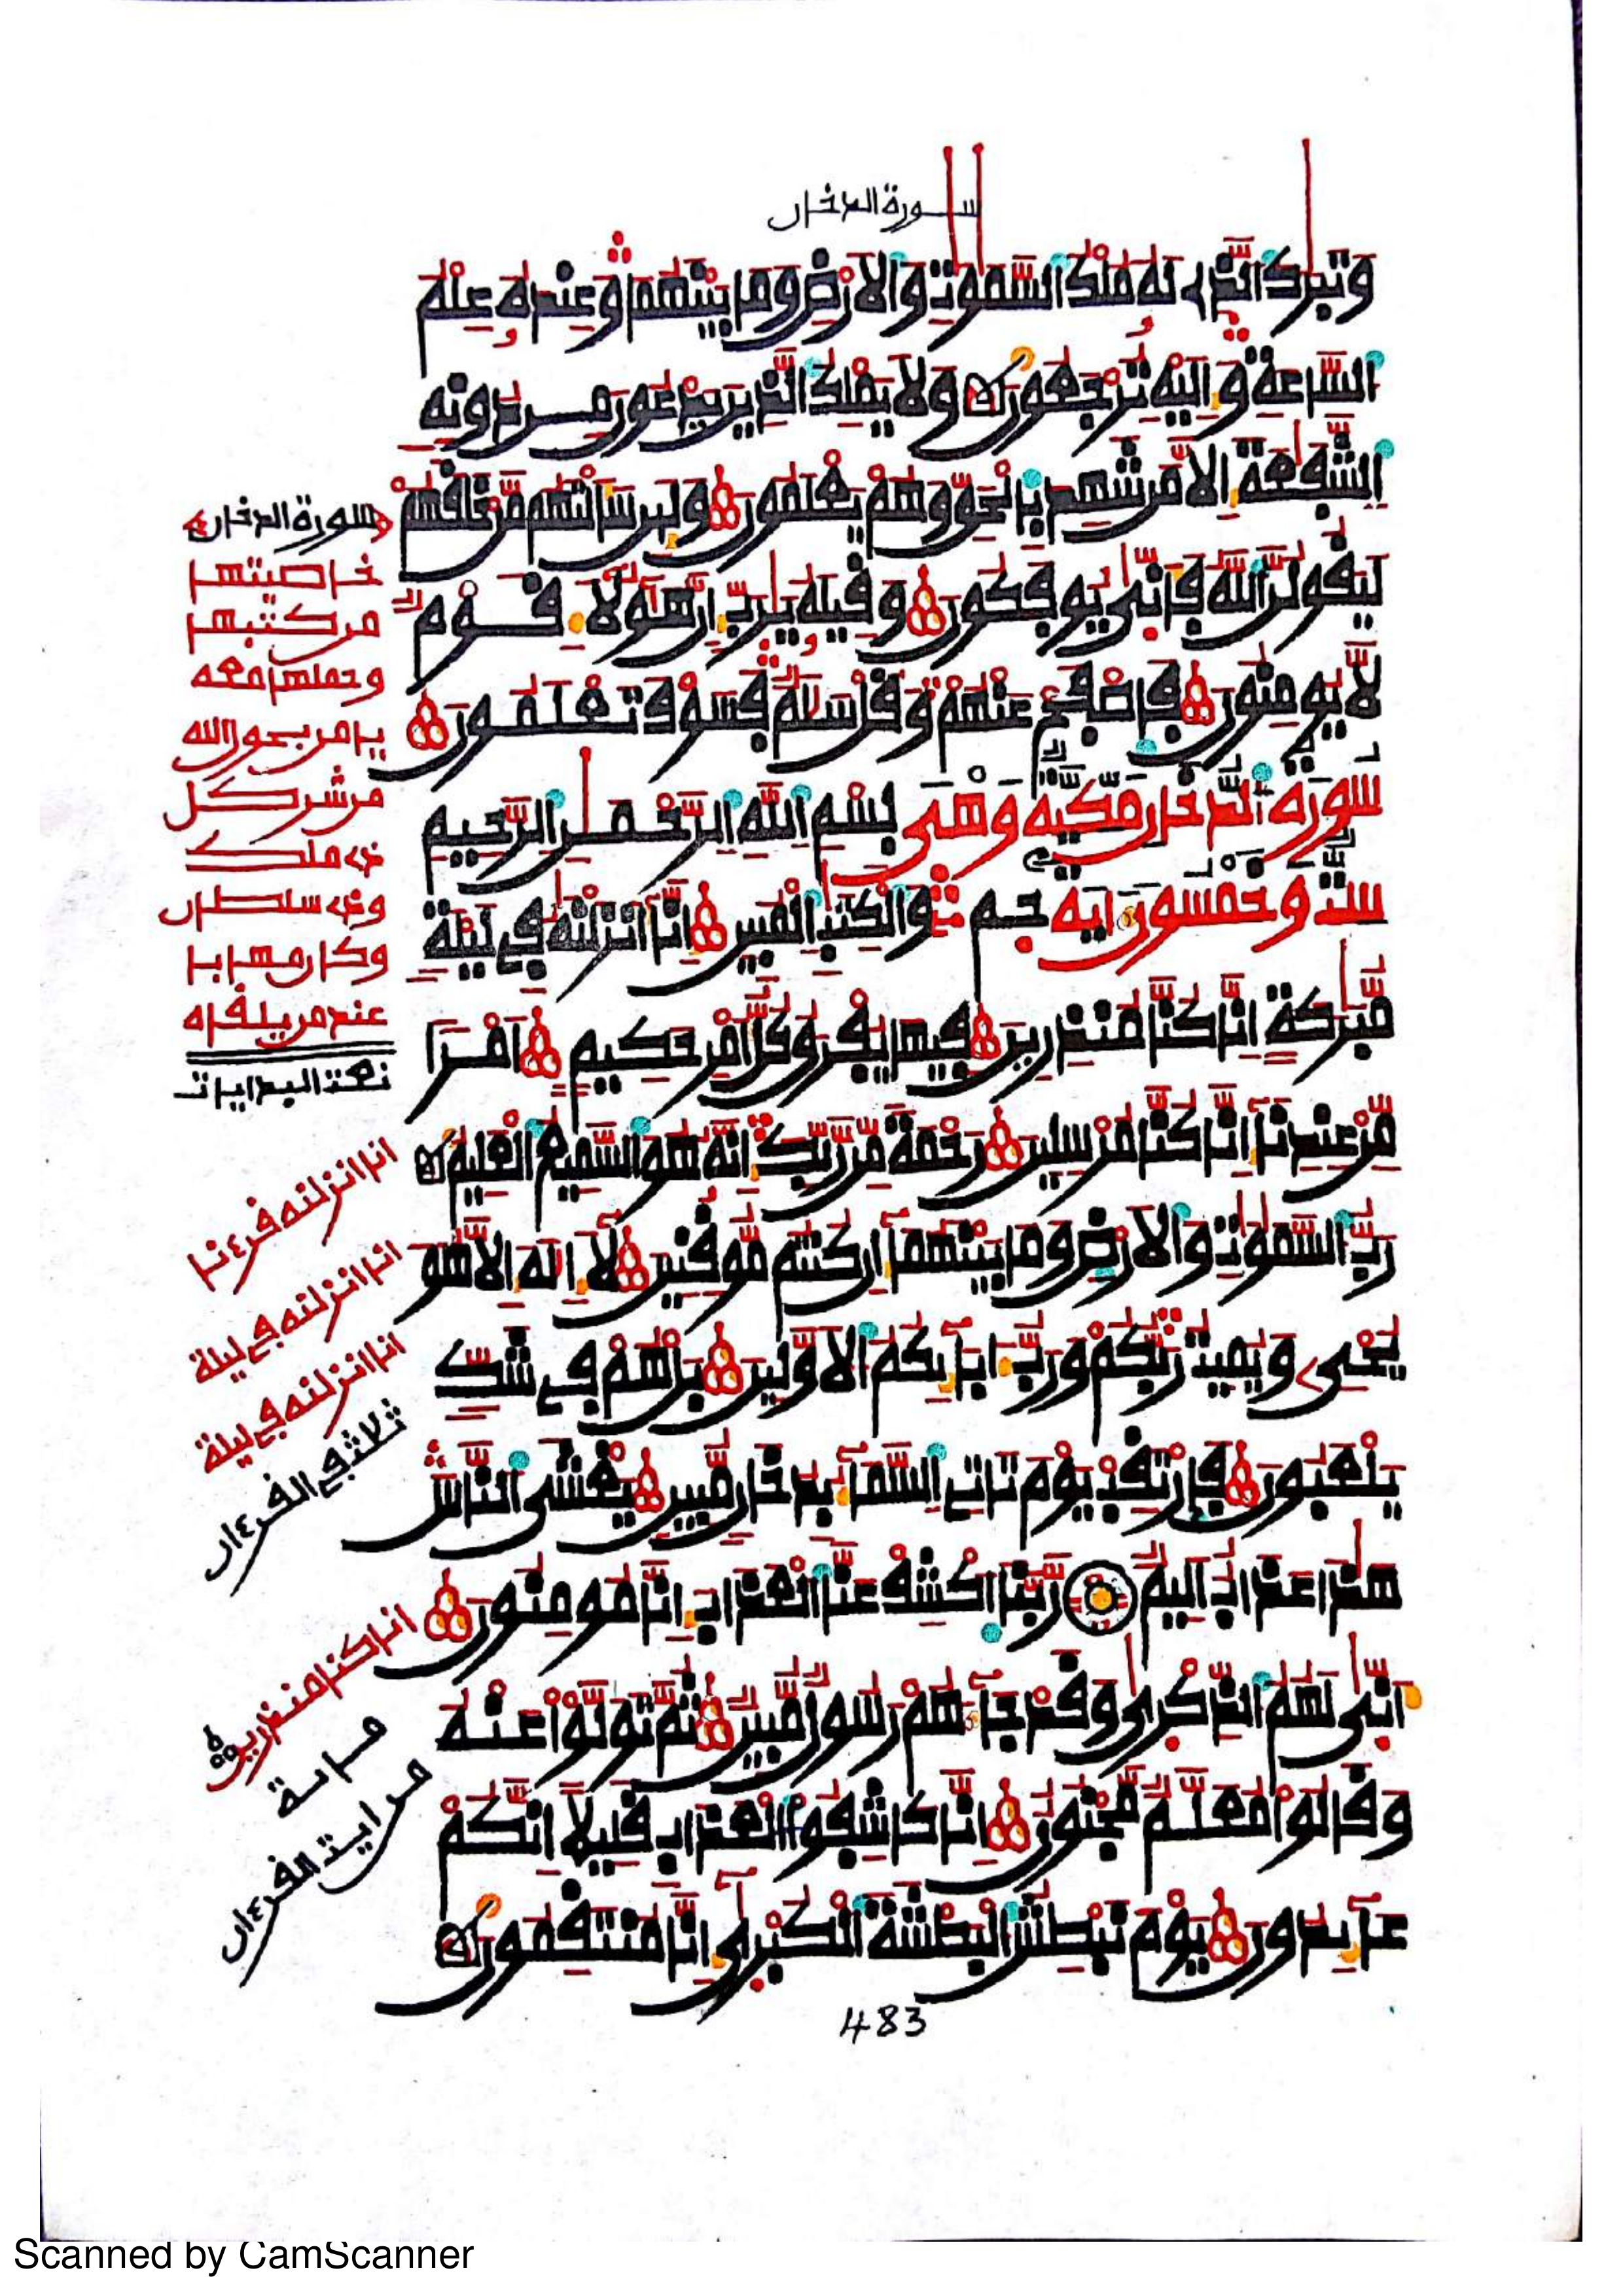 سورة الدخان
وتبرك الذي له ملك السموت والارض وما بينهما وعنده علم
الساعة واليه ترجعون ولا يملك الذين يدعون من دونه
الشفعة الا من شهد بالحق وهم يعلمون ولين سالتهم من خلقهم
ليقولن الله فاني يوفكون وقيله يرب ان هولاء قوم
لا يومنون فاصفح عنهم وقل سلم فسوف تعلمون
سورة الدخان مكية وهي بسم الله الرحمن الرحيم
ست وخمسون اية حم والكتب المبين انا انزلنه في ليلة
مبركة انا كنا منذرين فيها يفرق كل امر حكيم امرا
من عندنا انا كنا مرسلين رحمة من ربك انه هو السميع العليم
رب السموت والارض وما بينهما ان كنتم موقنين لا اله الا هو
يحي ويميت ربكم ورب ابايكم الاولين بل هم في شك
يلعبون فارتقب يوم تاتي السماء بدخان مبين يغشى الناس
هذا عذاب اليم ربنا اكشف عنا العذاب انا مومنون
انى لهم الذكرى وقد جاءهم رسول مبين ثم تولوا عنه
وقالوا معلم مجنون انا كاشفوا العذاب قليلا انكم
عايدون يوم نبطش البطشة الكبرى انا منتقمون
سورة الدخان
خاصيتها
من كتبها
وحملها معه
يامن بعون الله
من شر كل
ذي ملك
وذي سلطان
وكان مهابا
عند من يلقاه
نعت البدايات
انا انزلنه قرءنا
انا انزلنه في ليلة
انا انزلنه في ليلة
ثلاث في القرءان
انا كنا منذرين
من اية
القرءان
483
Scanned by CamScanner